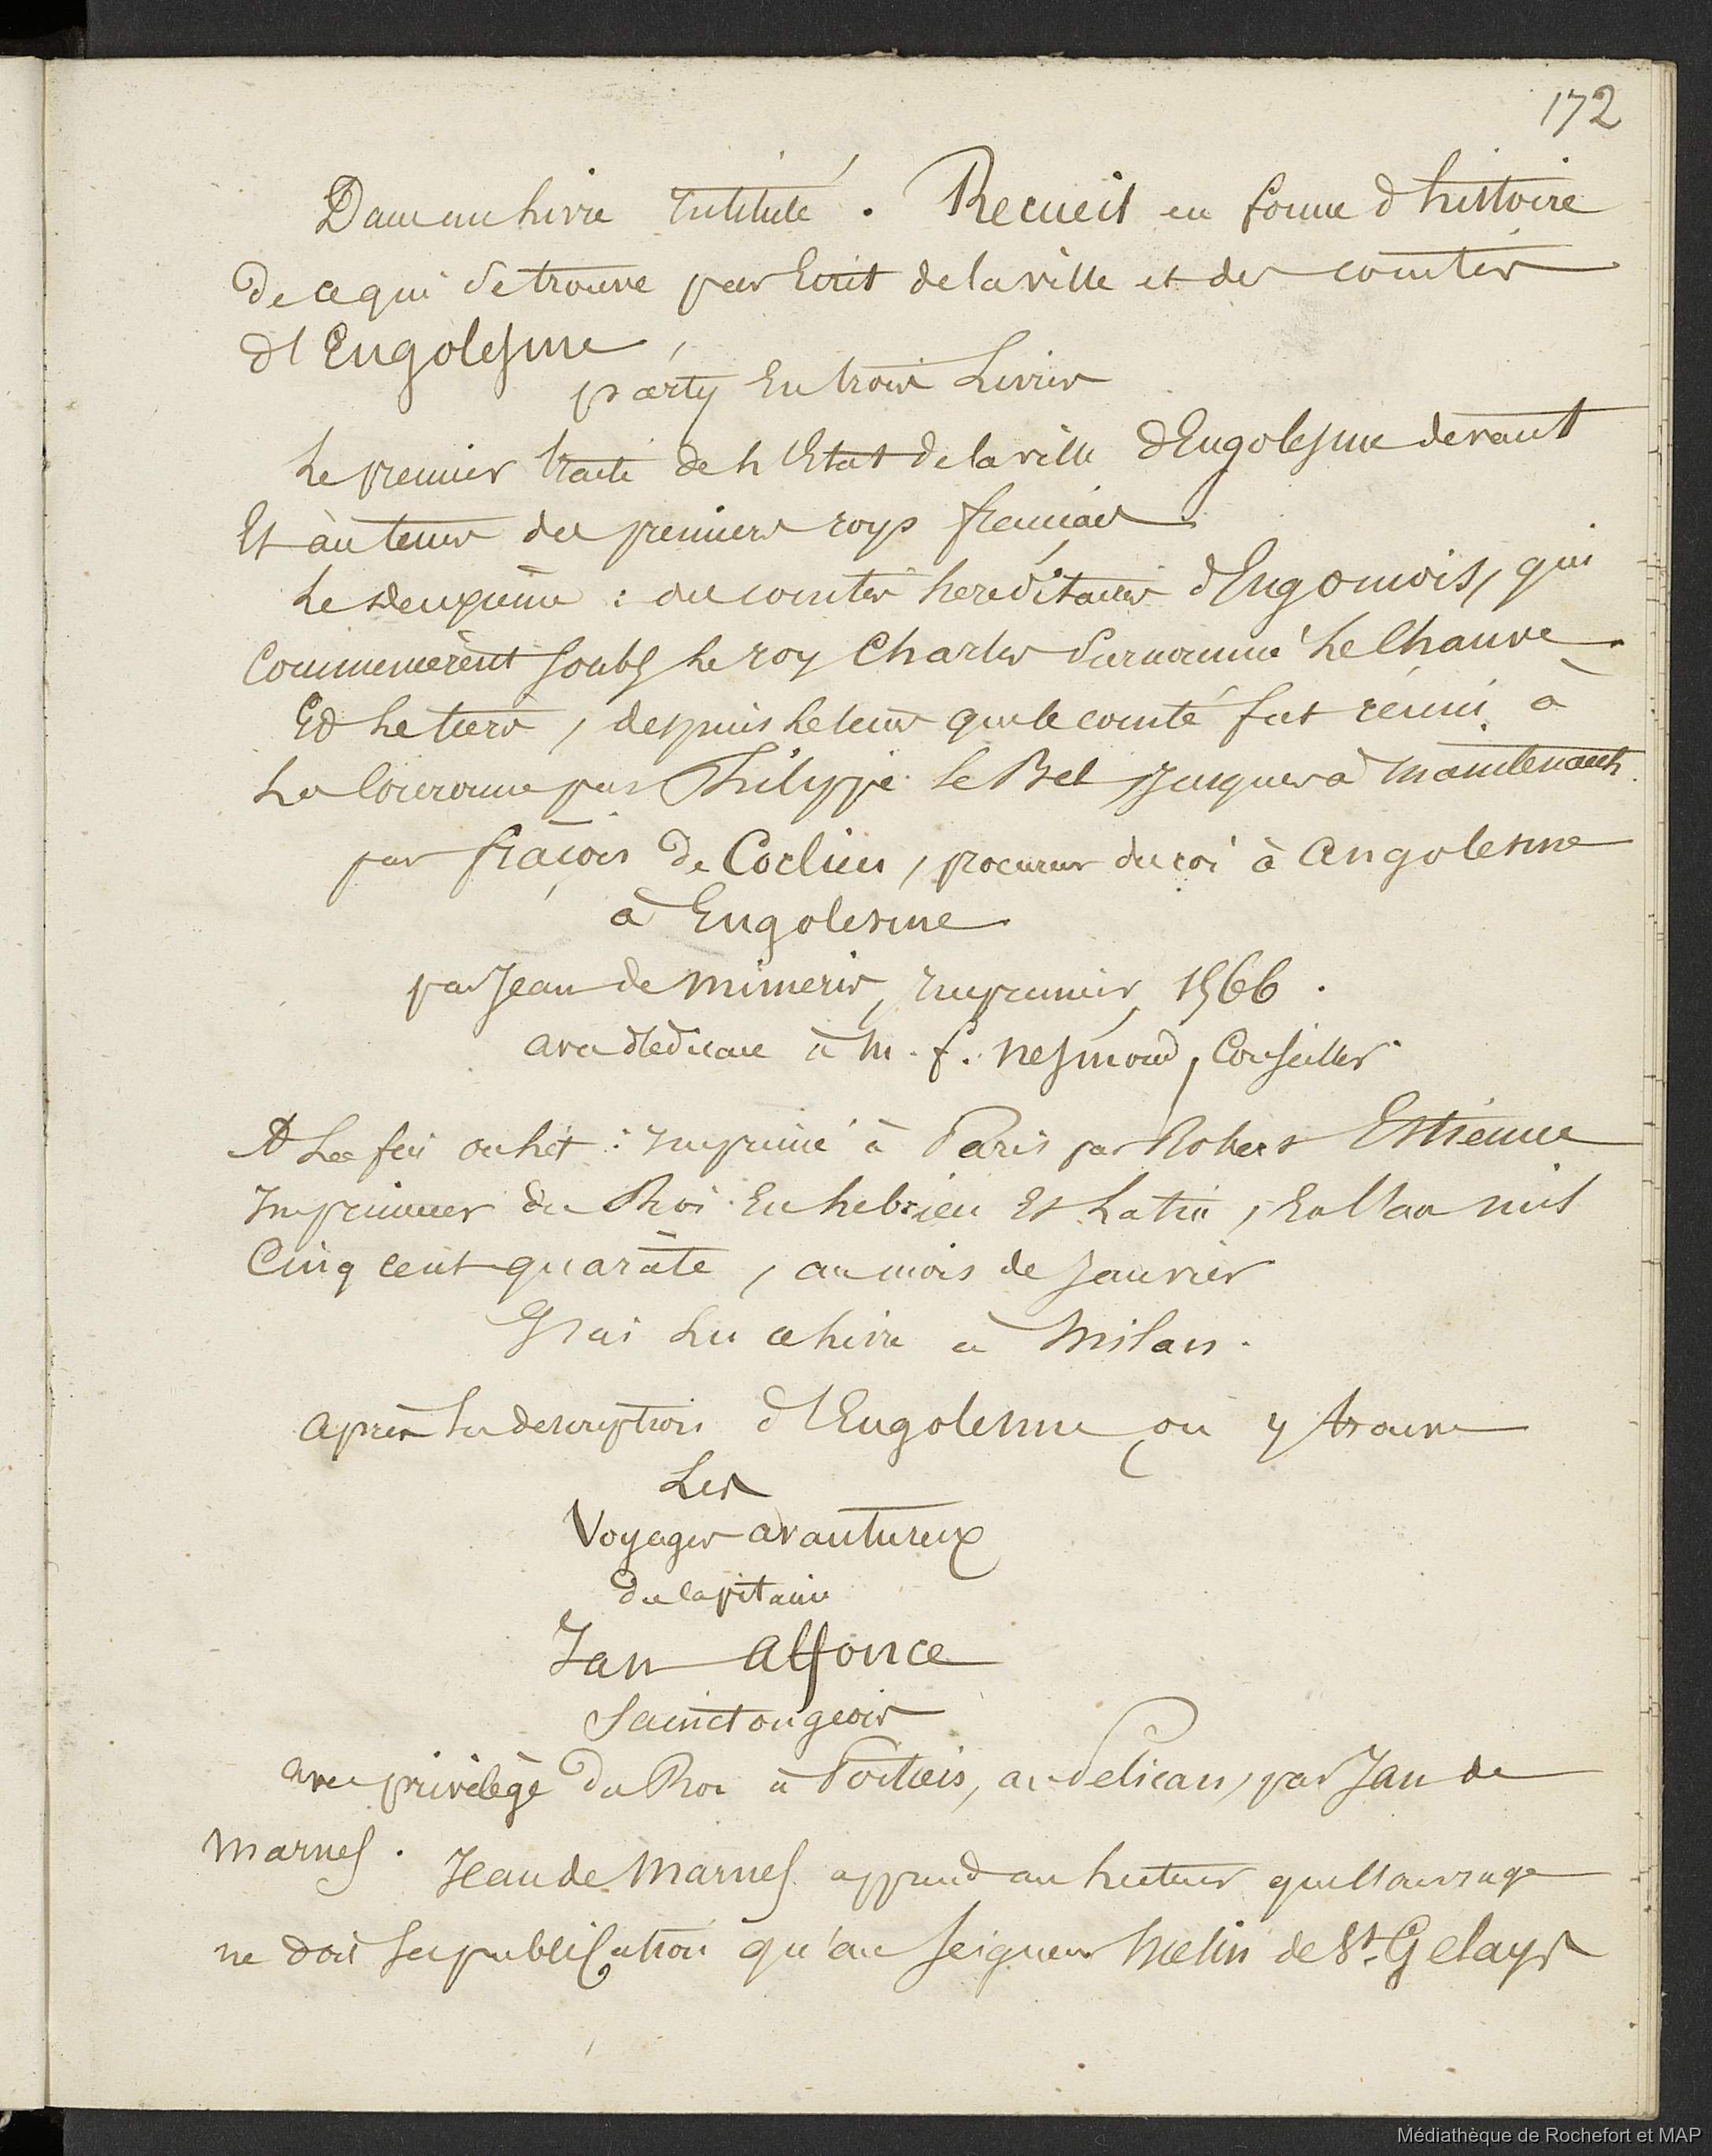 172
Dans un Livre Intitulé . Recueil en forme d'histoire
de ce qui se trouve par Ecrit de la ville et des comtes
d'Engolesme,
party En trois Livres
Le premier traite de l'Etat de la ville d'Engolesme devant
Et au tems des premiers roys francais
Le deuxieme : des comtes hereditaires d'Engomois, qui
commencerent soubs Le roy Charles Surnommé Le Chauve
Et Le tiers, despuis Le tems que le comté fut réuni à
La Couronne par Philippe le Bel Jusques à maintenant.
par frāçois de Corlieu, procureur du roi à Angolesme
à Engolesme
par Jean de mineris, Imprimeur, 1566 .
avec dedicace à M. f. nesmond, Conseiller
A La fin on Lit : Imprimé à Paris par Robert Estienne
Imprimeur du Roi En hebrieu Et Latin, En l'an mil
Cinq cent quarāte, au mois de Janvier
J'ai Lu ce Livre à Milan.
après La description d'Engolesme on y trouve
Les
Voyages avantureux
du Capitaine
Jan Alfonce
Sainctongeois
avec privilège du Roi à Poitiers, au Pelican, par Jan de
Marnef. Jean de Marnef apprend au Lecteur que l'ouvrage
ne doit sa publication qu'au Seigneur Melin de St. Gelays
Médiathèque de Rochefort et MAP